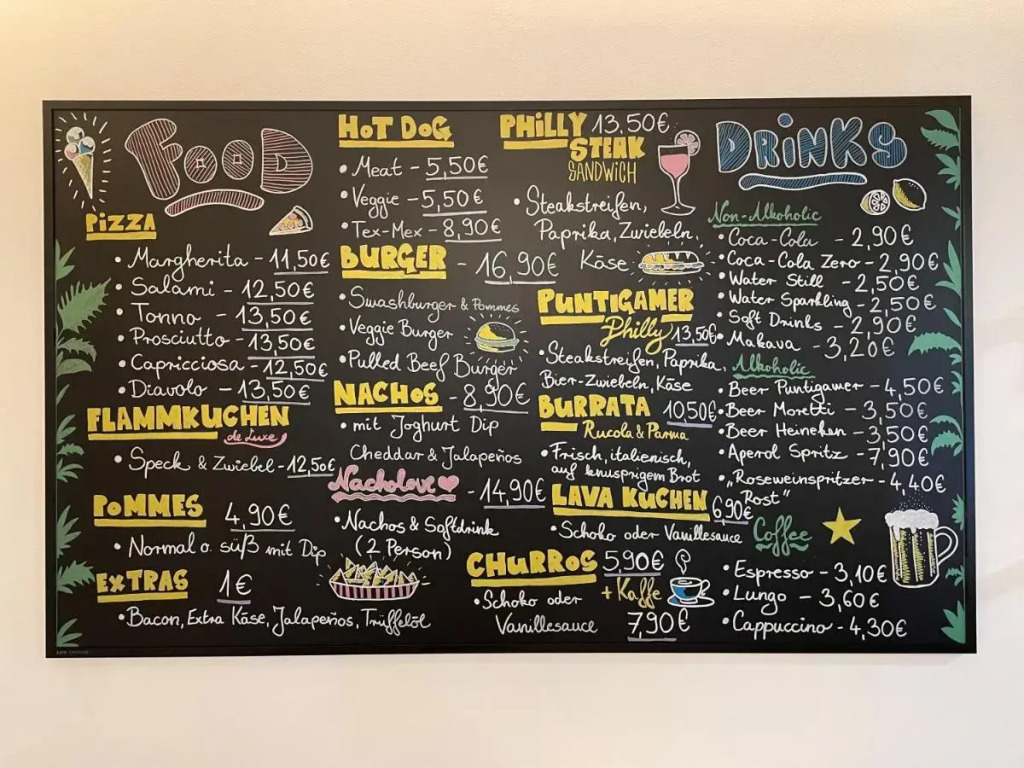 FOOD
PIZZA
• Margherita - 11,50€
• Salami - 12,50€
• Tonno - 13,50€
• Prosciutto - 13,50€
• Capricciosa - 12,50€
• Diavolo - 13,50€
FLAMMKUCHEN
de Luxe
• Speck & Zwiebel - 12,50€
POMMES 4,90€
• Normal o. süß mit Dip
EXTRAS 1€
• Bacon, Extra Käse, Jalapeños, Trüffelöl
HOT DOG
• Meat - 5,50€
• Veggie - 5,50€
• Tex-Mex - 8,90€
BURGER - 16,90€
• Smashburger & Pommes
• Veggie Burger
• Pulled Beef Burger
NACHOS - 8,90€
• mit Joghurt Dip
Cheddar & Jalapeños
Nacholove - 14,90€
• Nachos & Softdrink
(2 Person)
CHURROS 5,90€
• Schoko oder + Kaffe
Vanillesauce 7,90€
PHILLY 13,50€
STEAK
SANDWICH
• Steakstreifen,
Paprika, Zwiebeln,
Käse
PUNTIGAMER
Philly 13,50€
• Steakstreifen, Paprika,
Bier-Zwiebeln, Käse
BURRATA 10,50€
Rucola & Parma
• Frisch, italienisch,
auf knusprigem Brot
LAVA KUCHEN 6,90€
• Schoko oder Vanillesauce
DRINKS
Non-Alkoholic
• Coca-Cola - 2,90€
• Coca-Cola Zero - 2,90€
• Water Still - 2,50€
• Water Sparkling - 2,50€
• Soft Drinks - 2,90€
• Makava - 3,20€
Alkoholic
• Beer Puntigamer - 4,50€
• Beer Moretti - 3,50€
• Beer Heineken - 3,50€
• Aperol Spritz - 7,90€
• „Roseweinspritzer - 4,40€
Rost"
Coffee
• Espresso - 3,10€
• Lungo - 3,60€
• Cappuccino - 4,30€